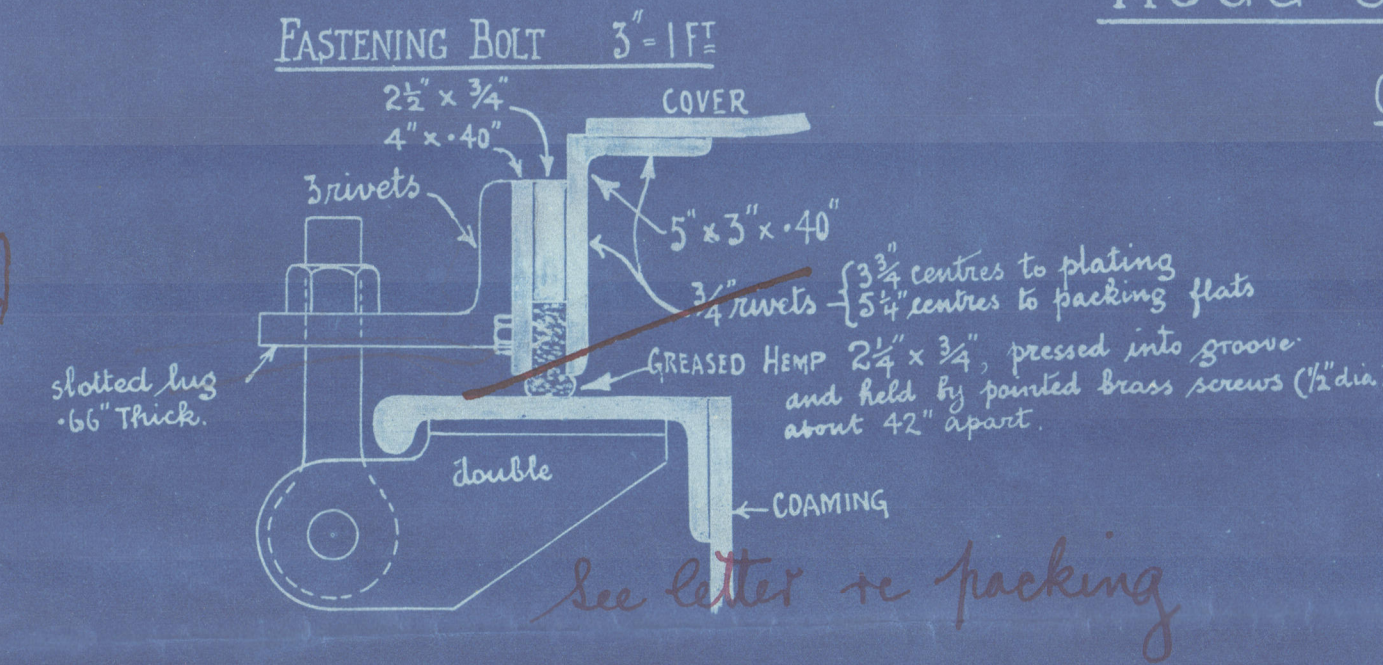 FASTENING BOLT 3" = 1 FT
2½" × ¾"
4" × ·40"
3 rivets
COVER
5" × 3" × ·40"
¾" rivets
3¾" centres to plating
5¼" centres to packing flats
GREASED HEMP 2¼" × ¾", pressed into groove
and held by pointed brass screws (½" dia
about 42" apart.
slotted lug
·66" Thick.
double
COAMING
See letter re packing